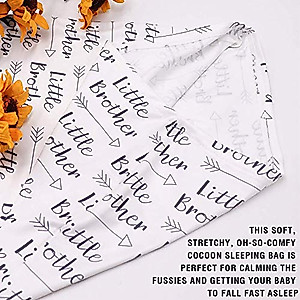 Little
Brother
Little
Brother
Little
Brother
Little
Brother
Little
Brother
Little
Brother
Little
Brother
THIS SOFT,
STRETCHY, OH-SO-COMFY
COCOON SLEEPING BAG IS
PERFECT FOR CALMING THE
FUSSIES AND GETTING YOUR BABY
TO FALL FAST ASLEEP